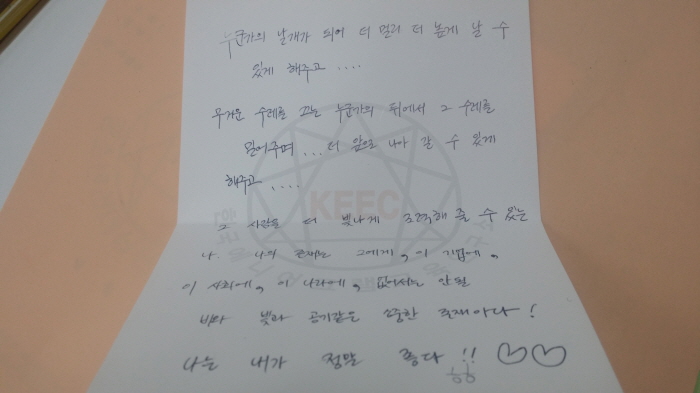 누군가의 날개가 되어 더 멀리 더 높게 날 수
있게 해주고 ....
무거운 수레를 끄는 누군가의 뒤에서 그 수레를
밀어주며 ... 더 앞으로 나아 갈 수 있게
해주고 ....
그 사람을 더 빛나게 조력해 줄 수 있는
나. 나의 존재는 그에게, 이 기업에,
이 사회에, 이 나라에, 없어서는 안될
비와 빛과 공기같은 소중한 존재이다!
나는 내가 정말 좋다 !! ♡♡
ㅎㅎ
KEEC